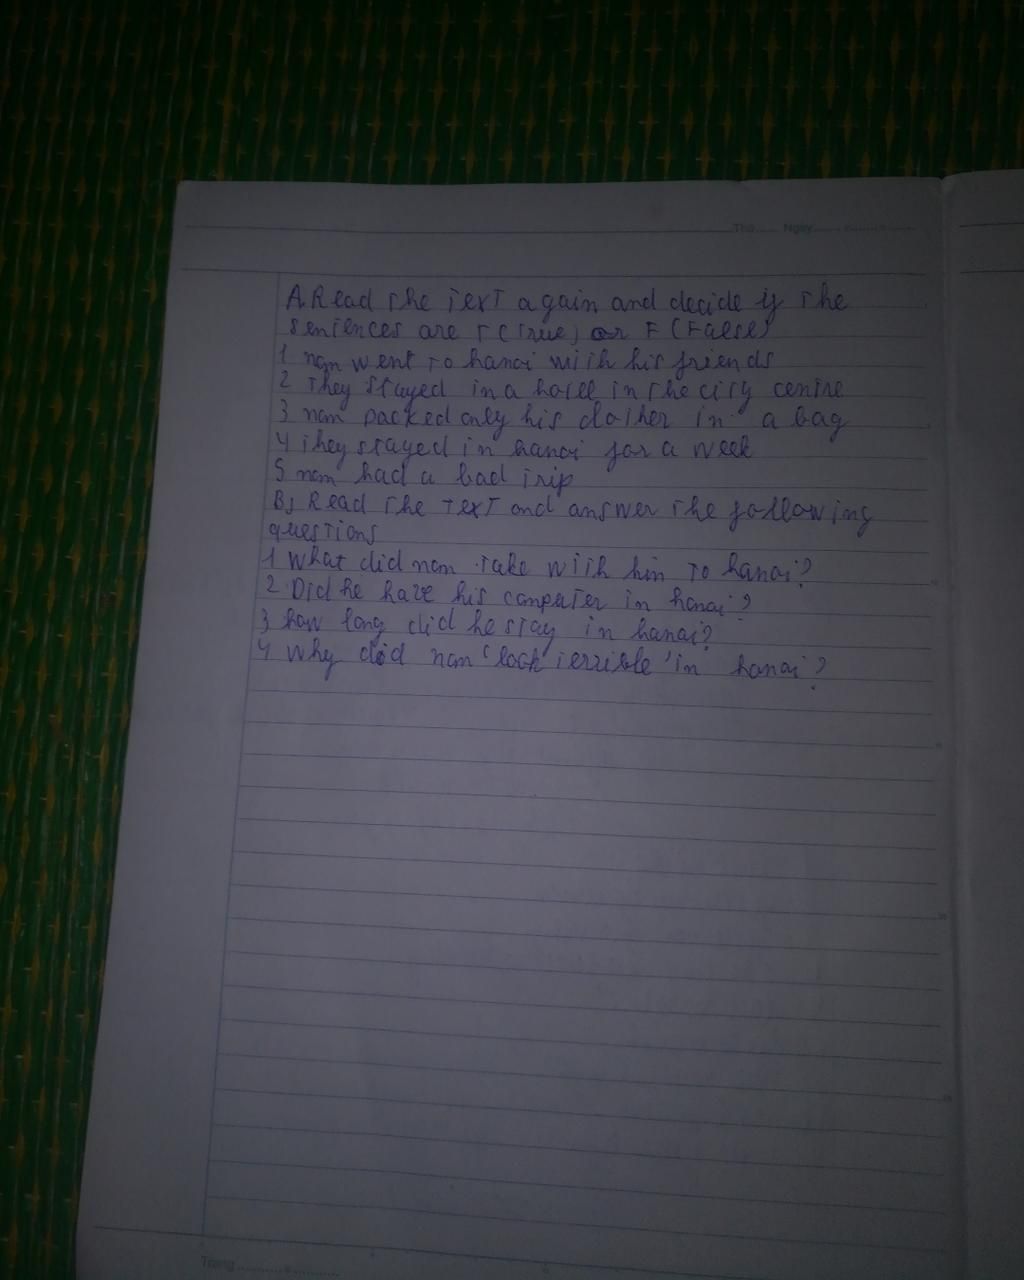 Thứ ...... Ngày ......
A. Read the text again and decide if the
sentences are T (True) or F (Falese)
1 nam went to hanoi with his friends
2 They stayed in a hotell in the city centre
3 nam packed only his clother in a bag
4 they stayed in hanoi for a week
5 nam had a bad trip
B) Read the text and answer the following
questions
1 What did nam take with him to hanoi?
2 Did he have his computer in hanoi?
3 how long did he stay in hanoi?
4 Why did nam 'look terrible' in hanoi?
Trang